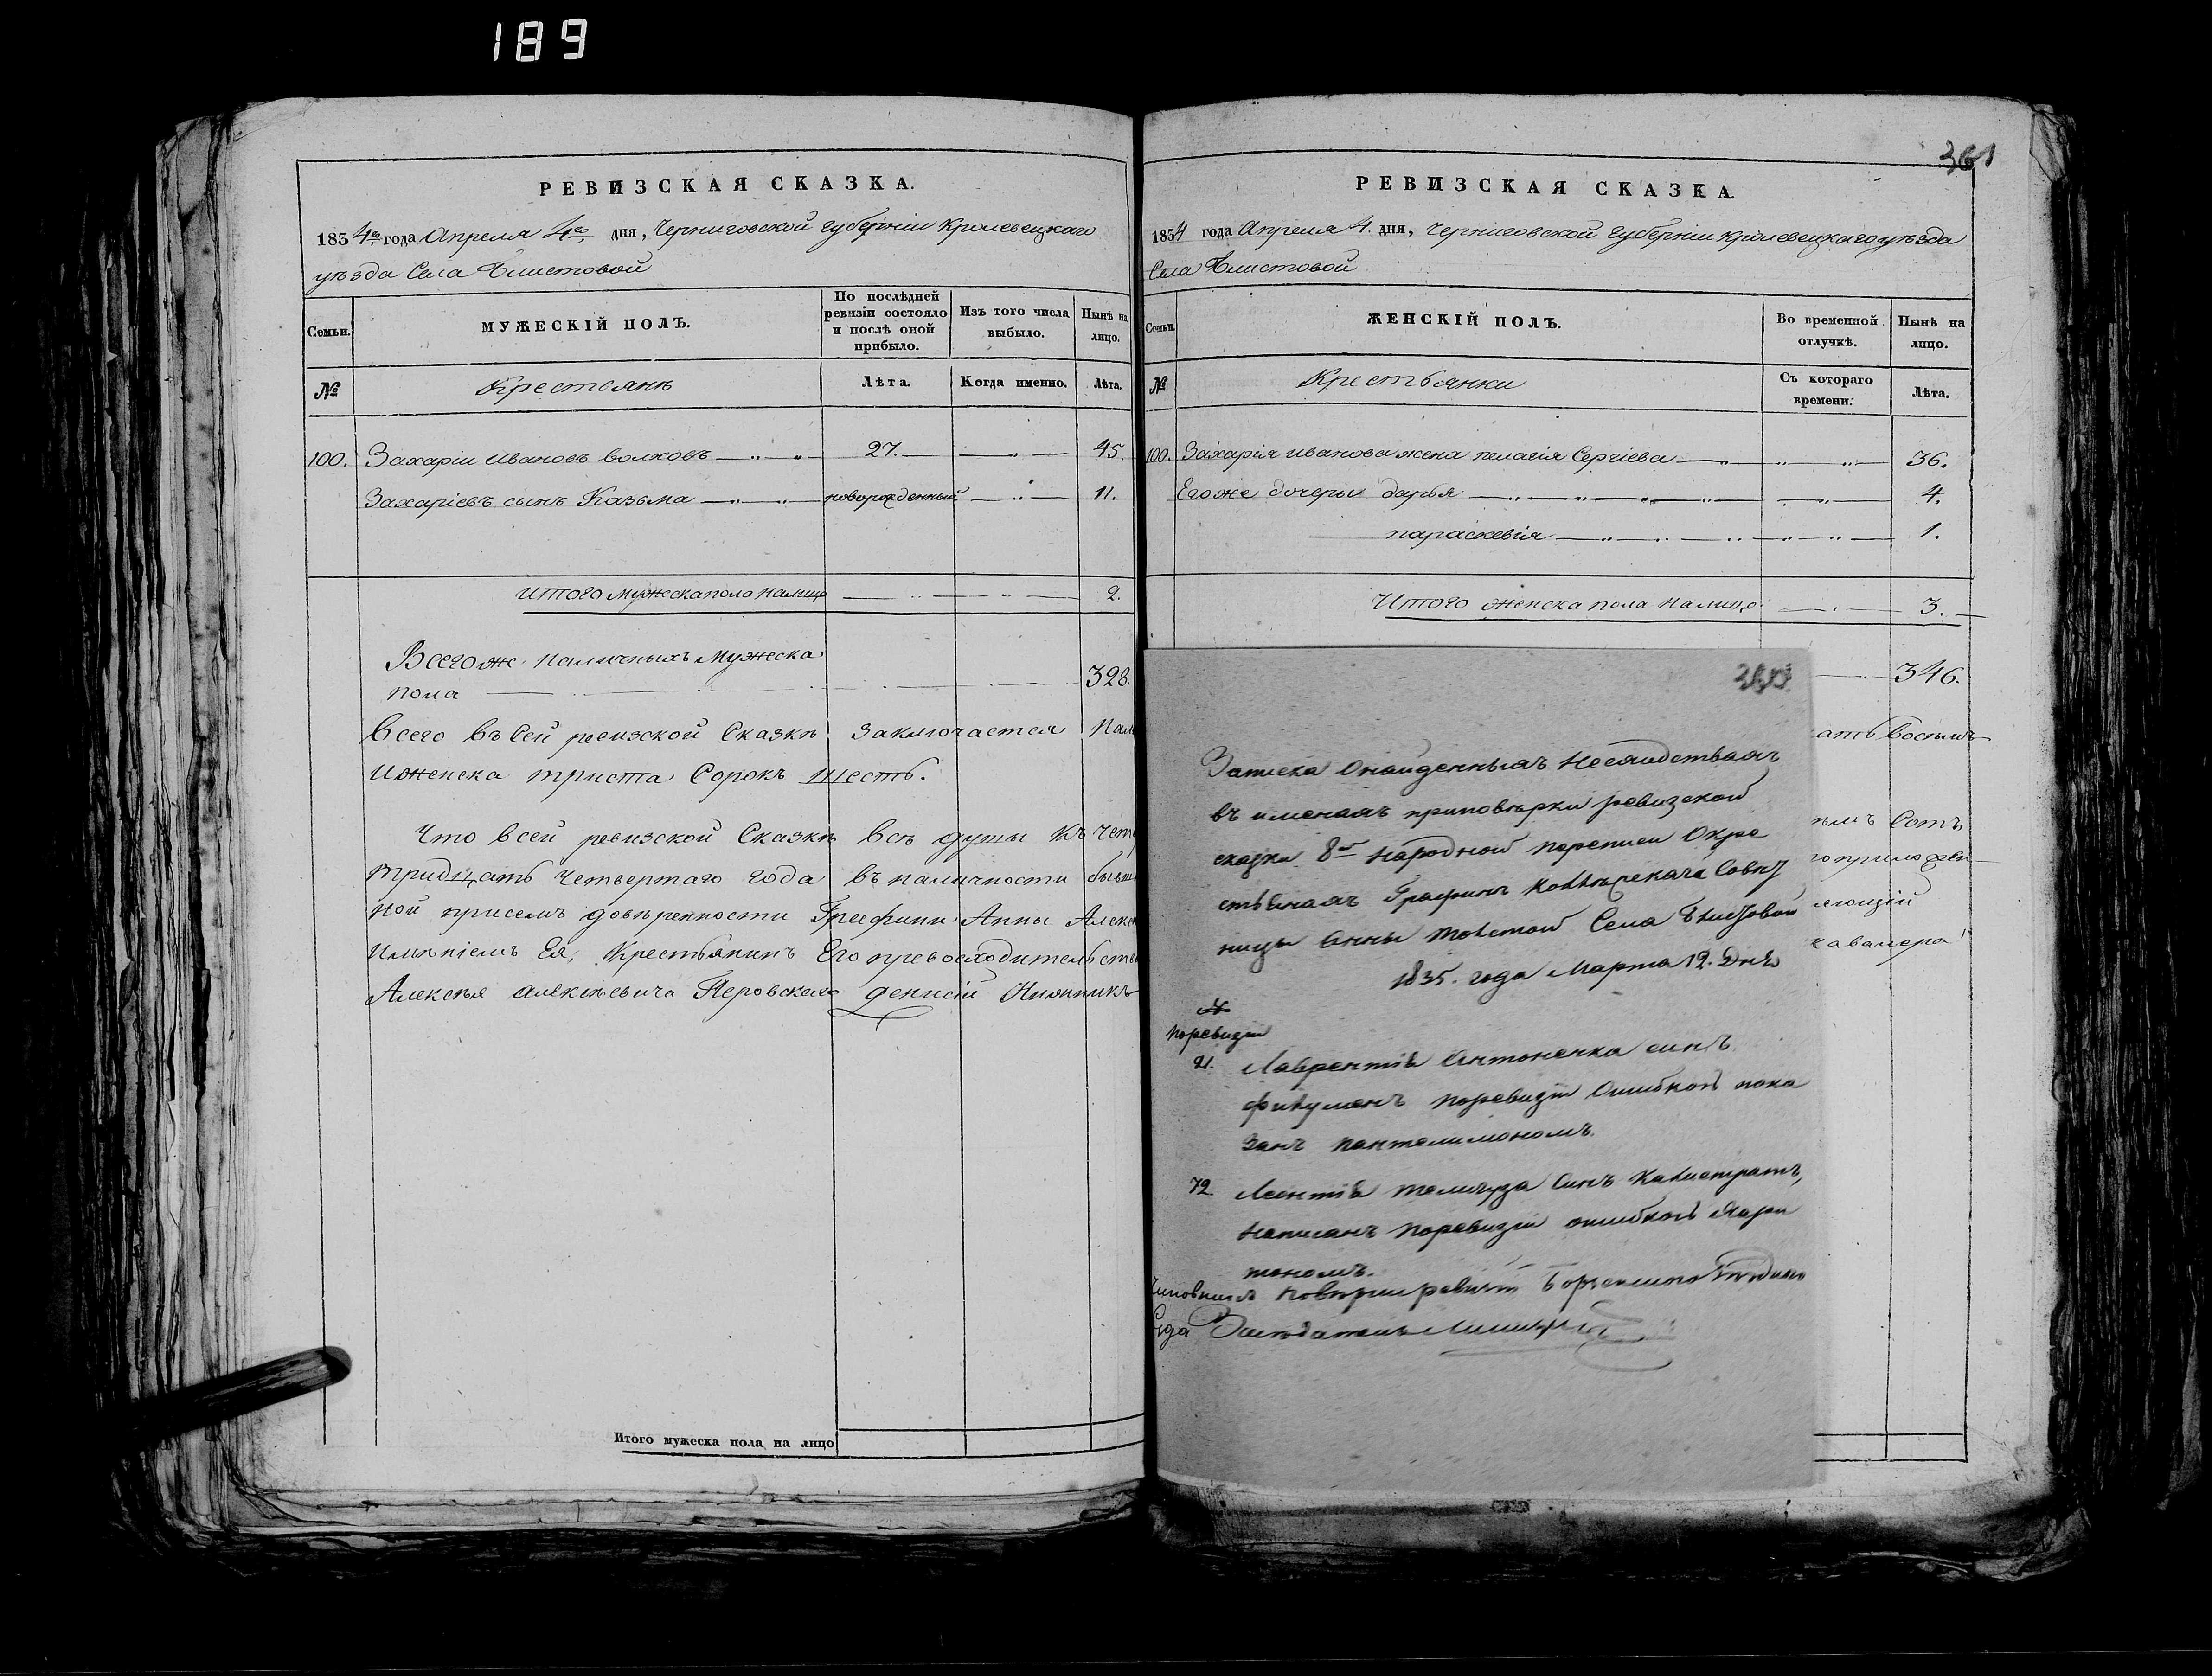 189
РЕВИЗСКАЯ СКАЗКА.
1834го года Апреля 4го дня, Черниговской губерніи Кролевецкаго
уѣзда Села Блистовой
Семьи.
МУЖЕСКІЙ ПОЛЪ.
По послѣдней ревизіи состояло и послѣ оной прибыло.
Изъ того числа выбыло.
Нынѣ на лицо.
№
Крестьянѣ
Лѣта.
Когда именно.
Лѣта.
100. Захарій Ивановъ Волковъ — „ „ 27. — „ — 45.
Захаріевъ сынъ Казьма — „ „ новорожденный — „ — 11.
Итого мужеска пола налицо — „ — „ — 2.
Всего же наличныхъ мужеска
пола — 328.
Всего въ сей ревизской Сказкѣ заключается нали
и женска триста Сорокъ шесть.
Что в сей ревизской Сказкѣ всѣ души къ четв
тридцать четвертаго года въ наличности бывш
ной при семъ довѣренности Графини Анны Алекс
имѣніемъ Ея, Крестьянинъ Его превосходительств
Алексѣя Алексѣевича Перовскаго Денисій
Итого мужеска пола на лицо
361
РЕВИЗСКАЯ СКАЗКА
1834 года Апреля 4. дня, Черниговской Губерніи Кролевецкаго уѣзда
Села Блистовой
Семьи.
ЖЕНСКІЙ ПОЛЪ.
Во временной отлучкѣ.
Нынѣ на лицо.
№
Крестьянки
Съ котораго времени.
Лѣта.
100. Захарія Иванова жена Пелагія Сергіева — „ — „ „ — 36.
Его же дочери Дарья — „ — „ — „ — „ — „ — 4.
Параскевія — „ — „ — „ — „ „ — 1.
Итого женска пола налицо — „ — 3.
346.
ать восьмъ
Сотъ
го приложен
яющій
кавалера
Записка о найденныхъ
въ именахъ при повѣрки ревизской
сказки 8й народной переписи о кре
стьянахъ Графини Совѣт
ницы Анны Толстой Села Блистовой
1835. года Марта 12. Дня
№
по ревизіи
21. Лаврентія Антоненка синъ
Филумонъ по ревизіи Ошибкой пока
занъ Пантелимономъ.
72. Леонтія синъ Калистратъ,
написанъ по ревизіи ошибкой Хари
тономъ.
Чиновникъ повѣрки ревизіи
Суда Засѣдатель